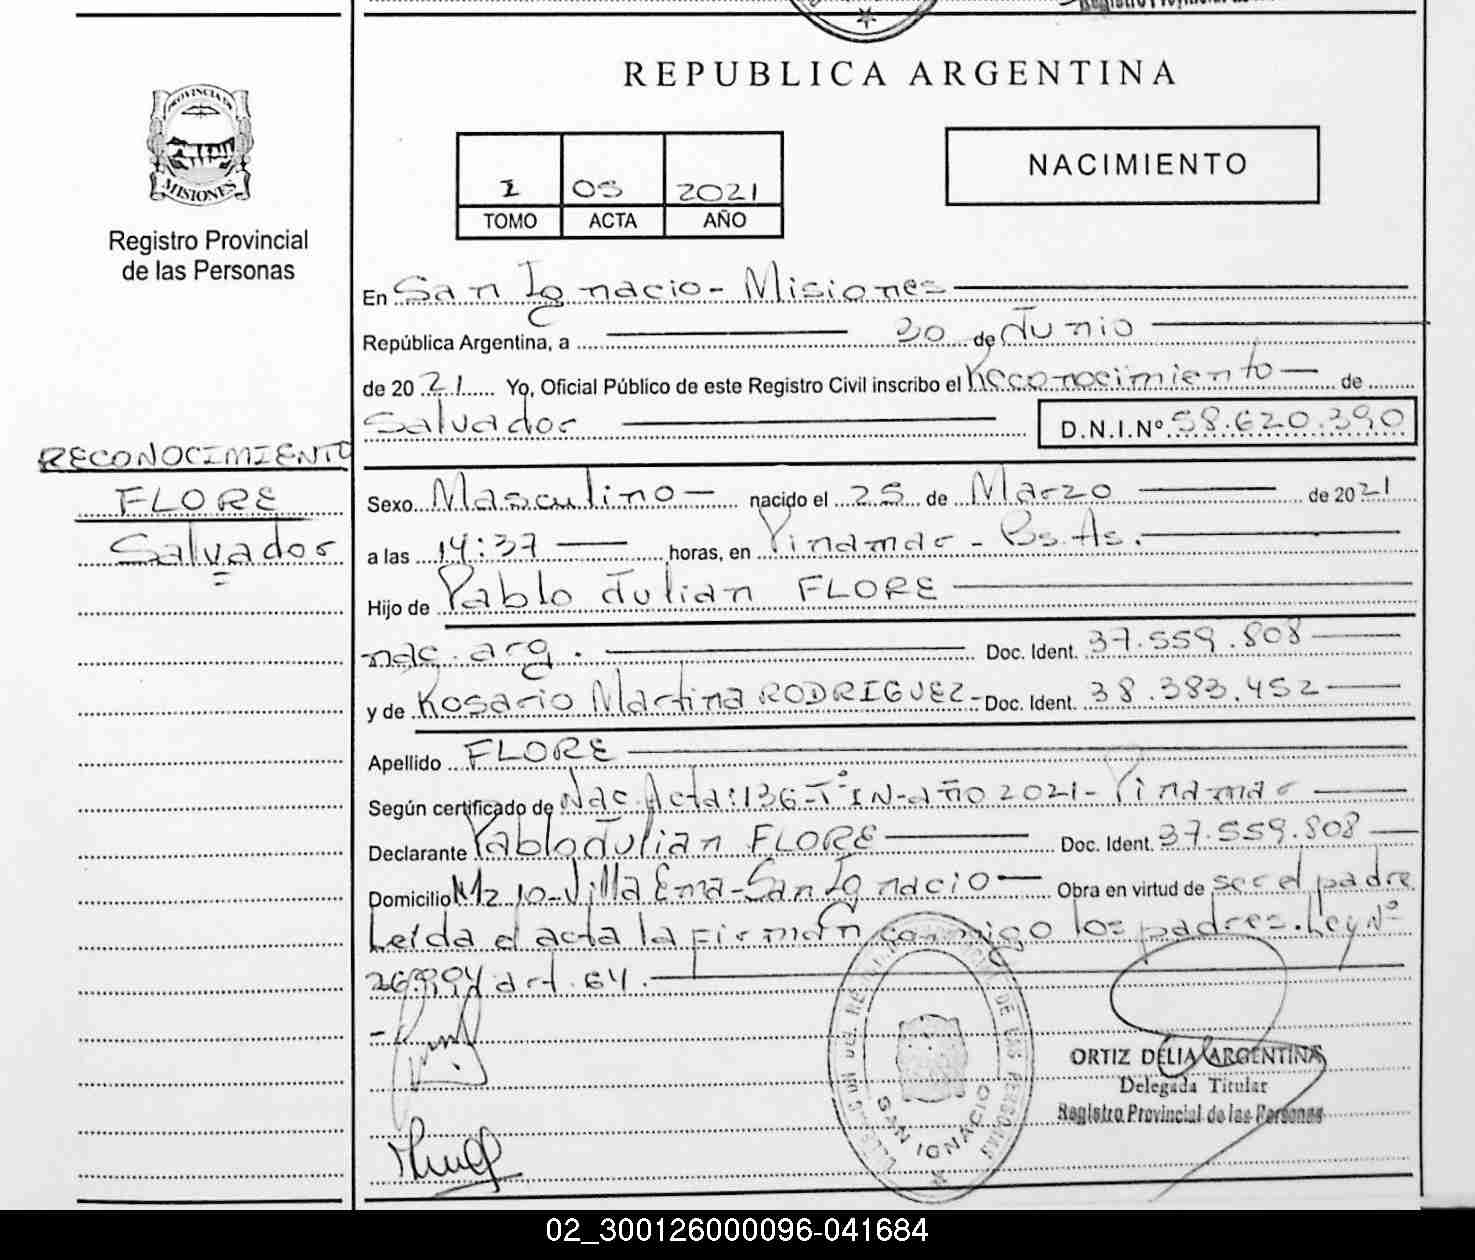 REPUBLICA ARGENTINA
PROVINCIA DE
MISIONES
Registro Provincial
de las Personas
I 05 2021
TOMO ACTA AÑO
NACIMIENTO
En San Ignacio - Misiones
República Argentina, a 30 de Junio
de 2021 Yo, Oficial Público de este Registro Civil inscribo el Reconocimiento de
Salvador D.N.I.Nº 58.620.390
RECONOCIMIENTO
FLORE
Salvador
Sexo Masculino nacido el 25 de Marzo de 2021
a las 14:37 horas, en Pinamar - Bs.As.
Hijo de Pablo Julian FLORE
nac. arg. Doc. Ident. 37.559.808
y de Rosario Martina RODRIGUEZ - Doc. Ident. 38.383.452
Apellido FLORE
Según certificado de Nac. Acta: 136-Tº IN-año 2021- Pinamar
Declarante Pablo Julian FLORE Doc. Ident. 37.559.808
Domicilio Mz 10-Villa Ema-San Ignacio Obra en virtud de ser el padre
Leída el acta la firman conmigo los padres. Ley Nº
26.994 art. 64.
SAN IGNACIO
ORTIZ DELIA ARGENTINA
Delegada Titular
Registro Provincial de las Personas
02_300126000096-041684